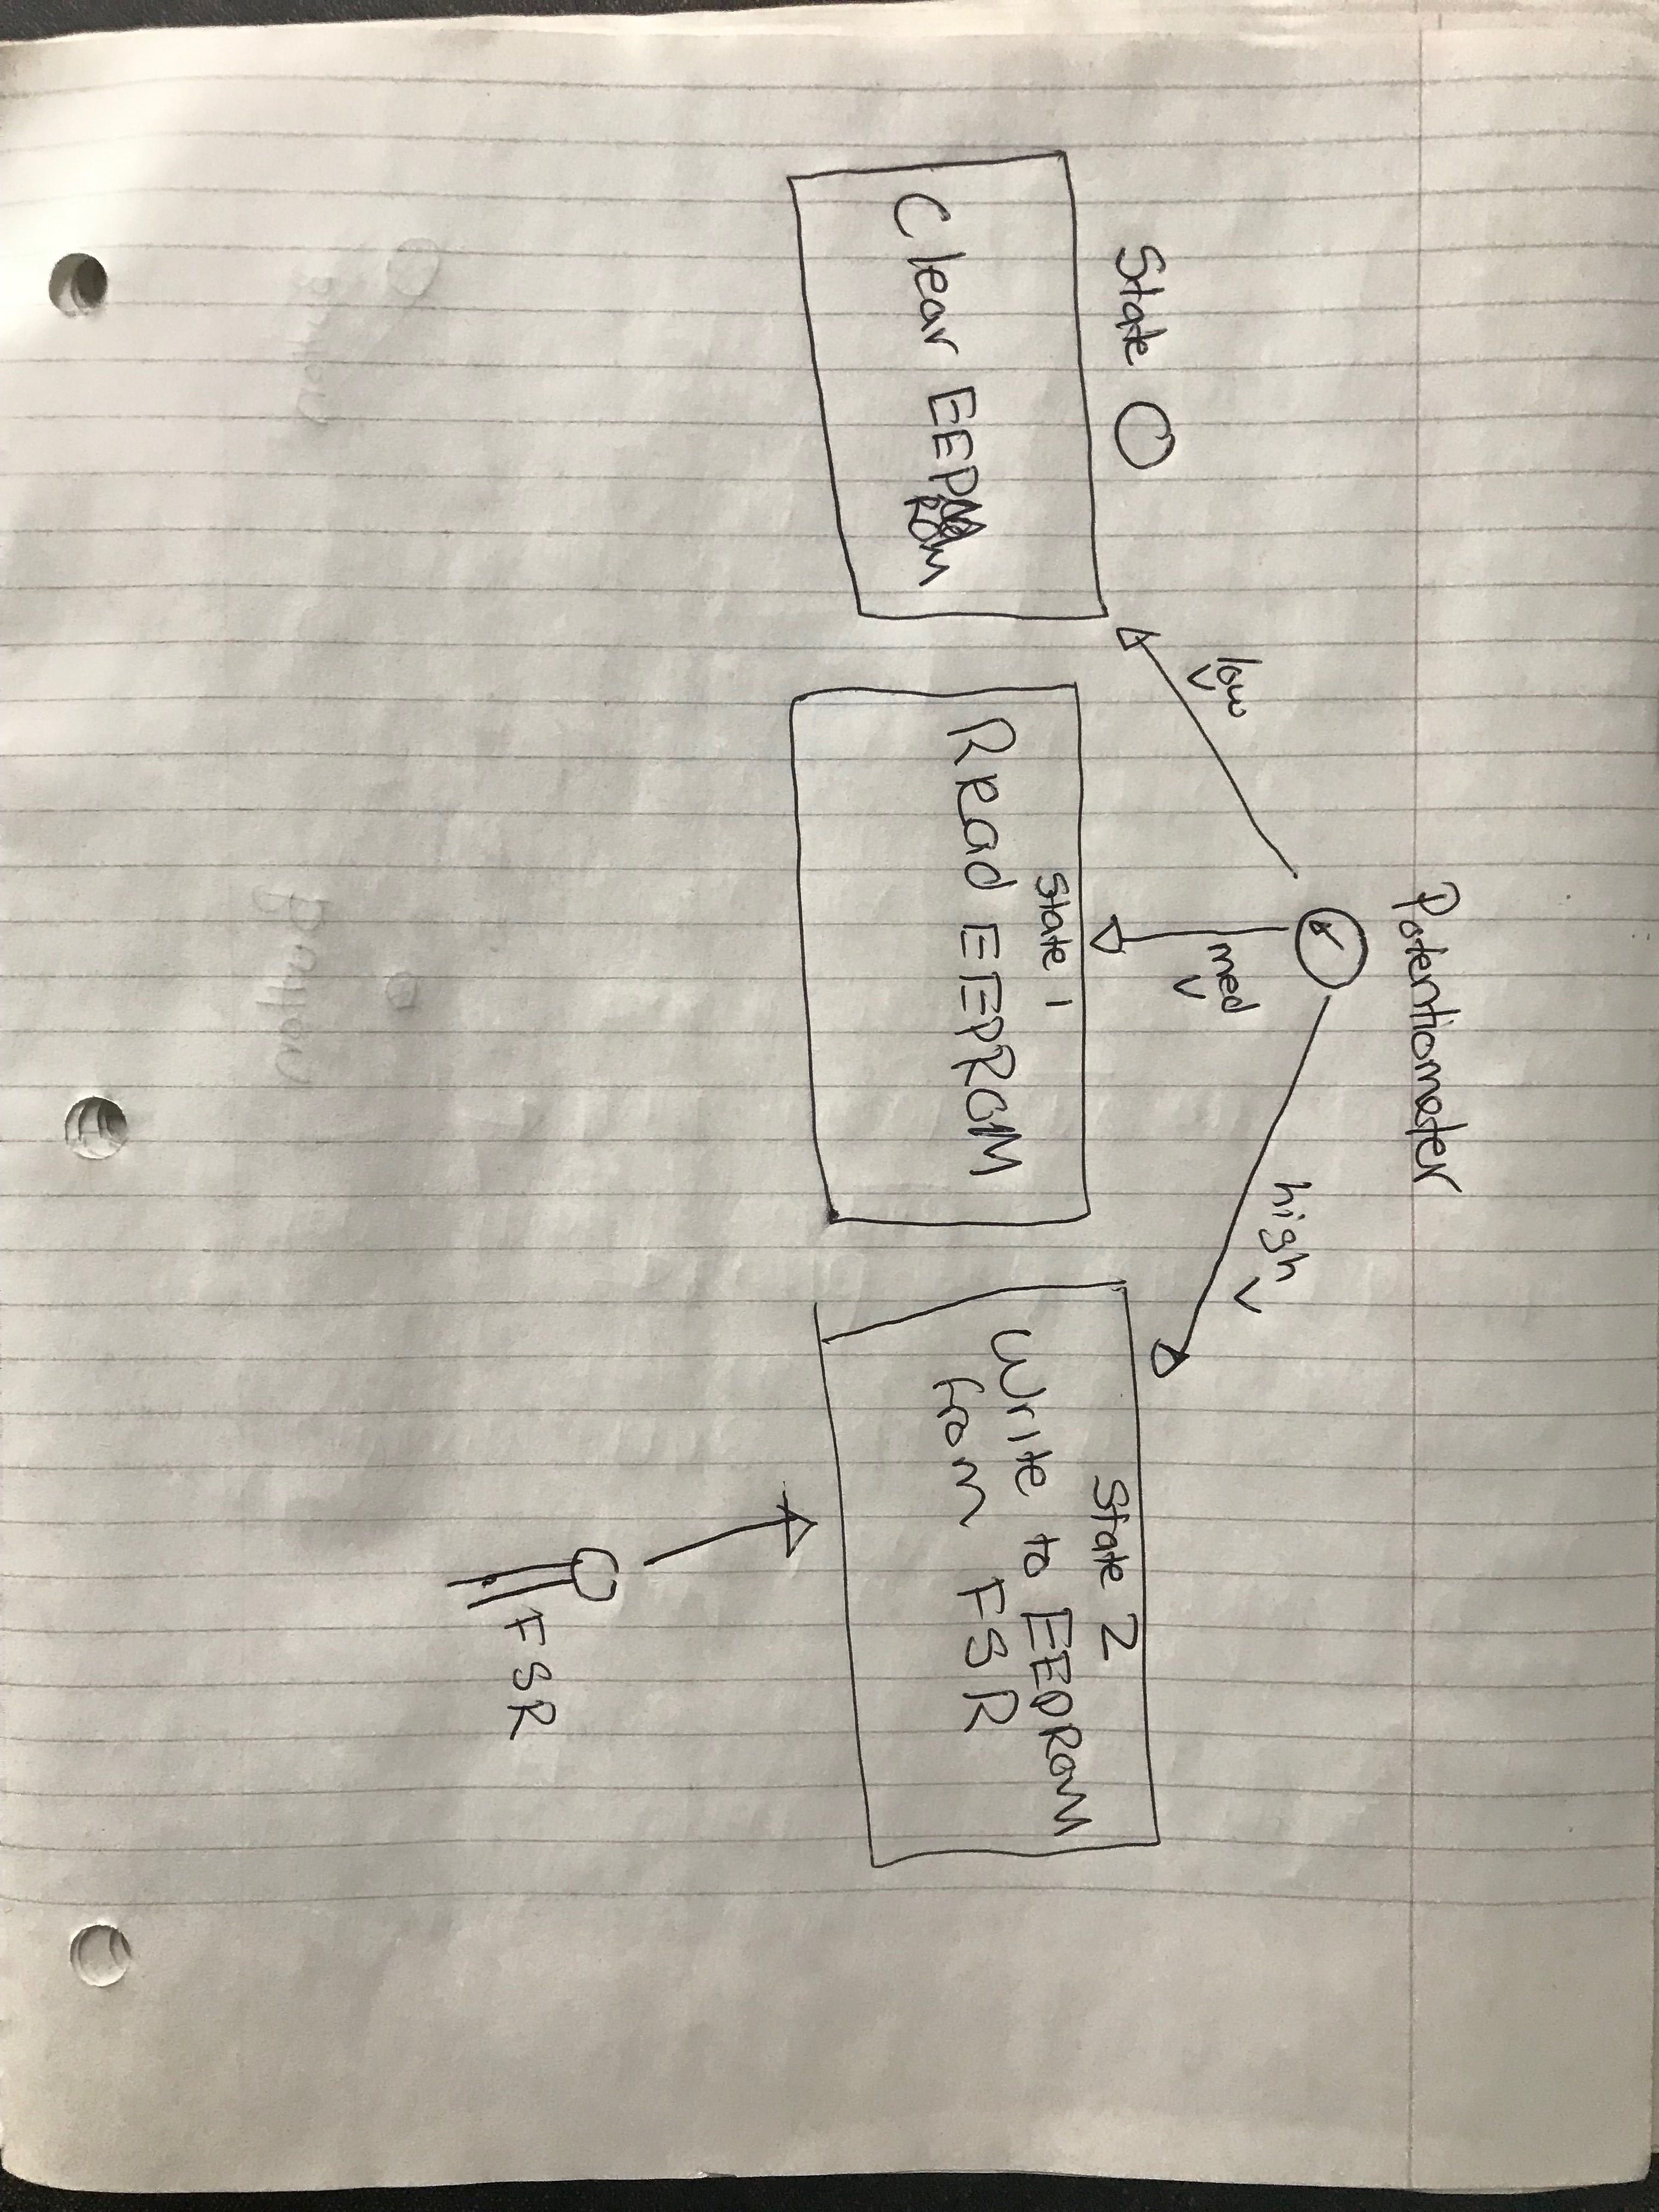 Potentiometer
low
V
med
V
high V
State 0
Clear EEPROM
State 1
Read EEPROM
State 2
Write to EEPROM
from FSR
FSR